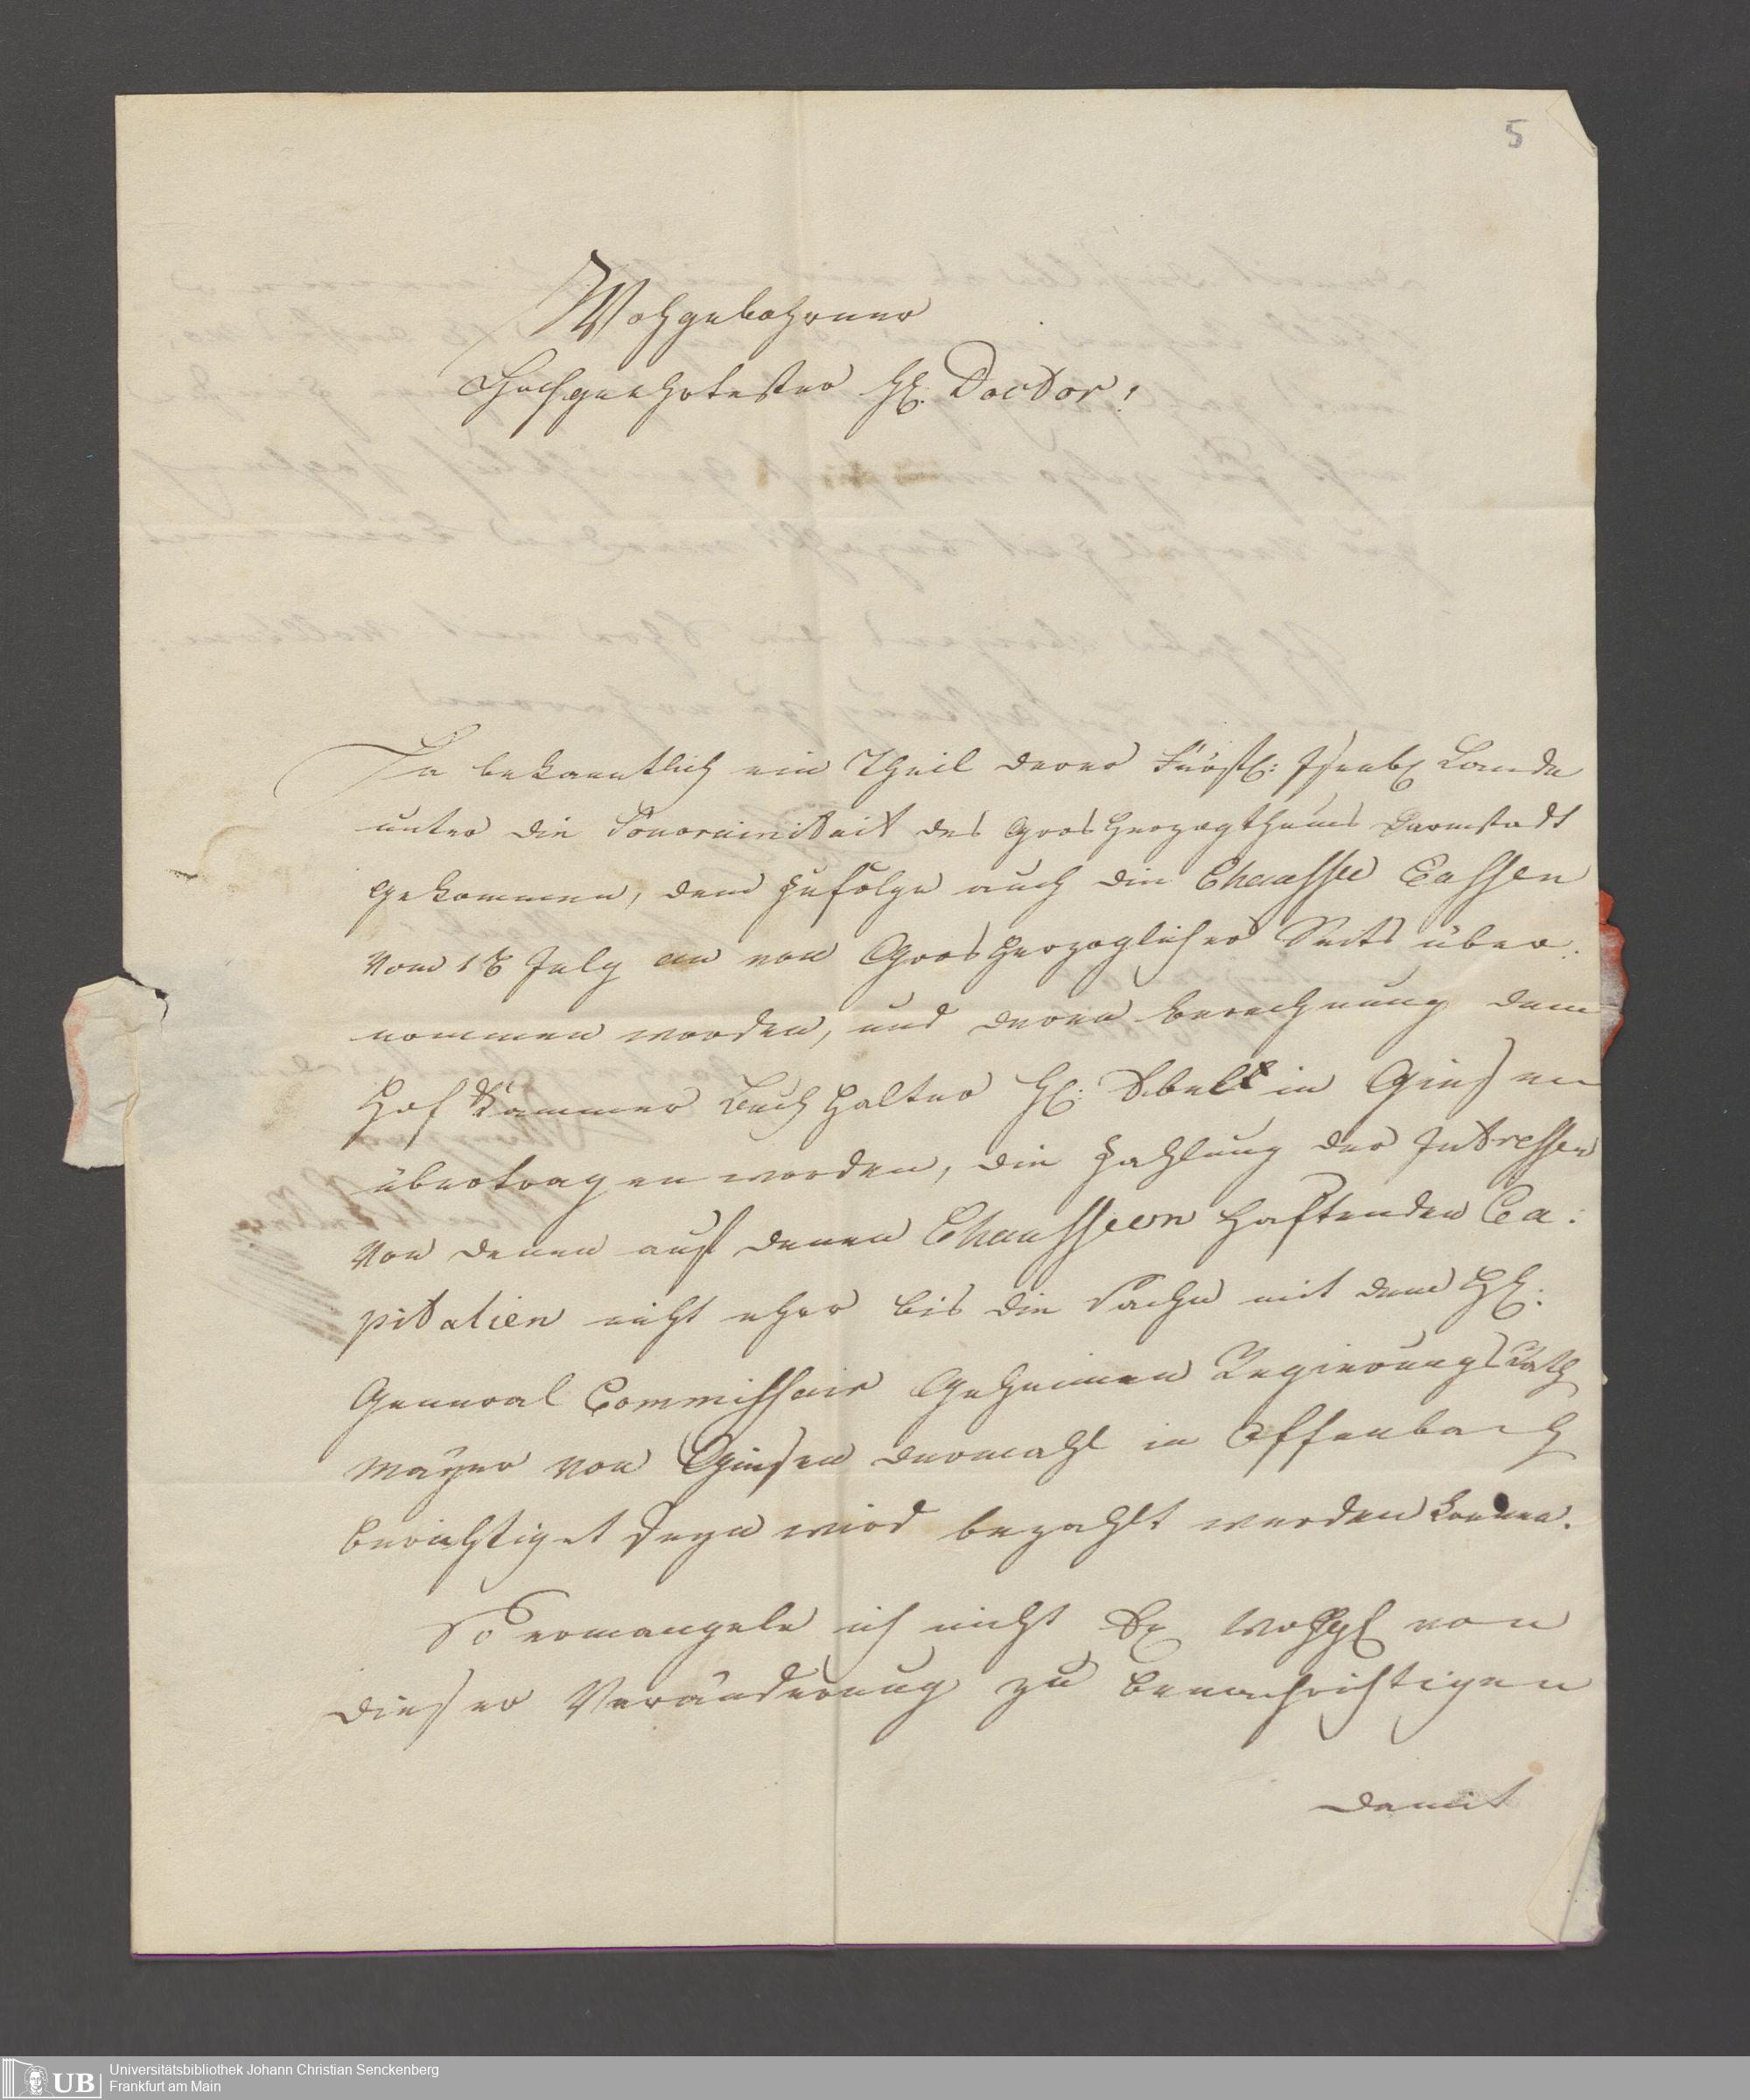 5
Wohgebohrner
Hochgeehrtester H. Doctor!
Da bekanntlich ein Theil derer Fürstl: Isenb. Lande
unter die Souverainitait des Grosherzogthums Darmstadt
gekommen, dem zufolge auch die Chaussee Cassen
vom 1t July an von Grosherzoglicher Seits über:
nommen worden, und deren berechnung dem
Hof Kammer Buchhalter H: in Giessen
übertragen worden, die Zahlung der Intressen
von denen auf denen Chausseen haftenden Ca:
pitalien nicht eher bis die Sache mit dem H:
General Commissair Geheimen Regierungs Rath
Mayer von Giesen dermahl in Offenbach
berichtiget seyn wird bezahlt werden können.
So ermangele ich nicht Ew Wohgl von
dieser Veränderung zu benachrichtigen
damit
UB Universitätsbibliothek Johann Christian Senckenberg
Frankfurt am Main